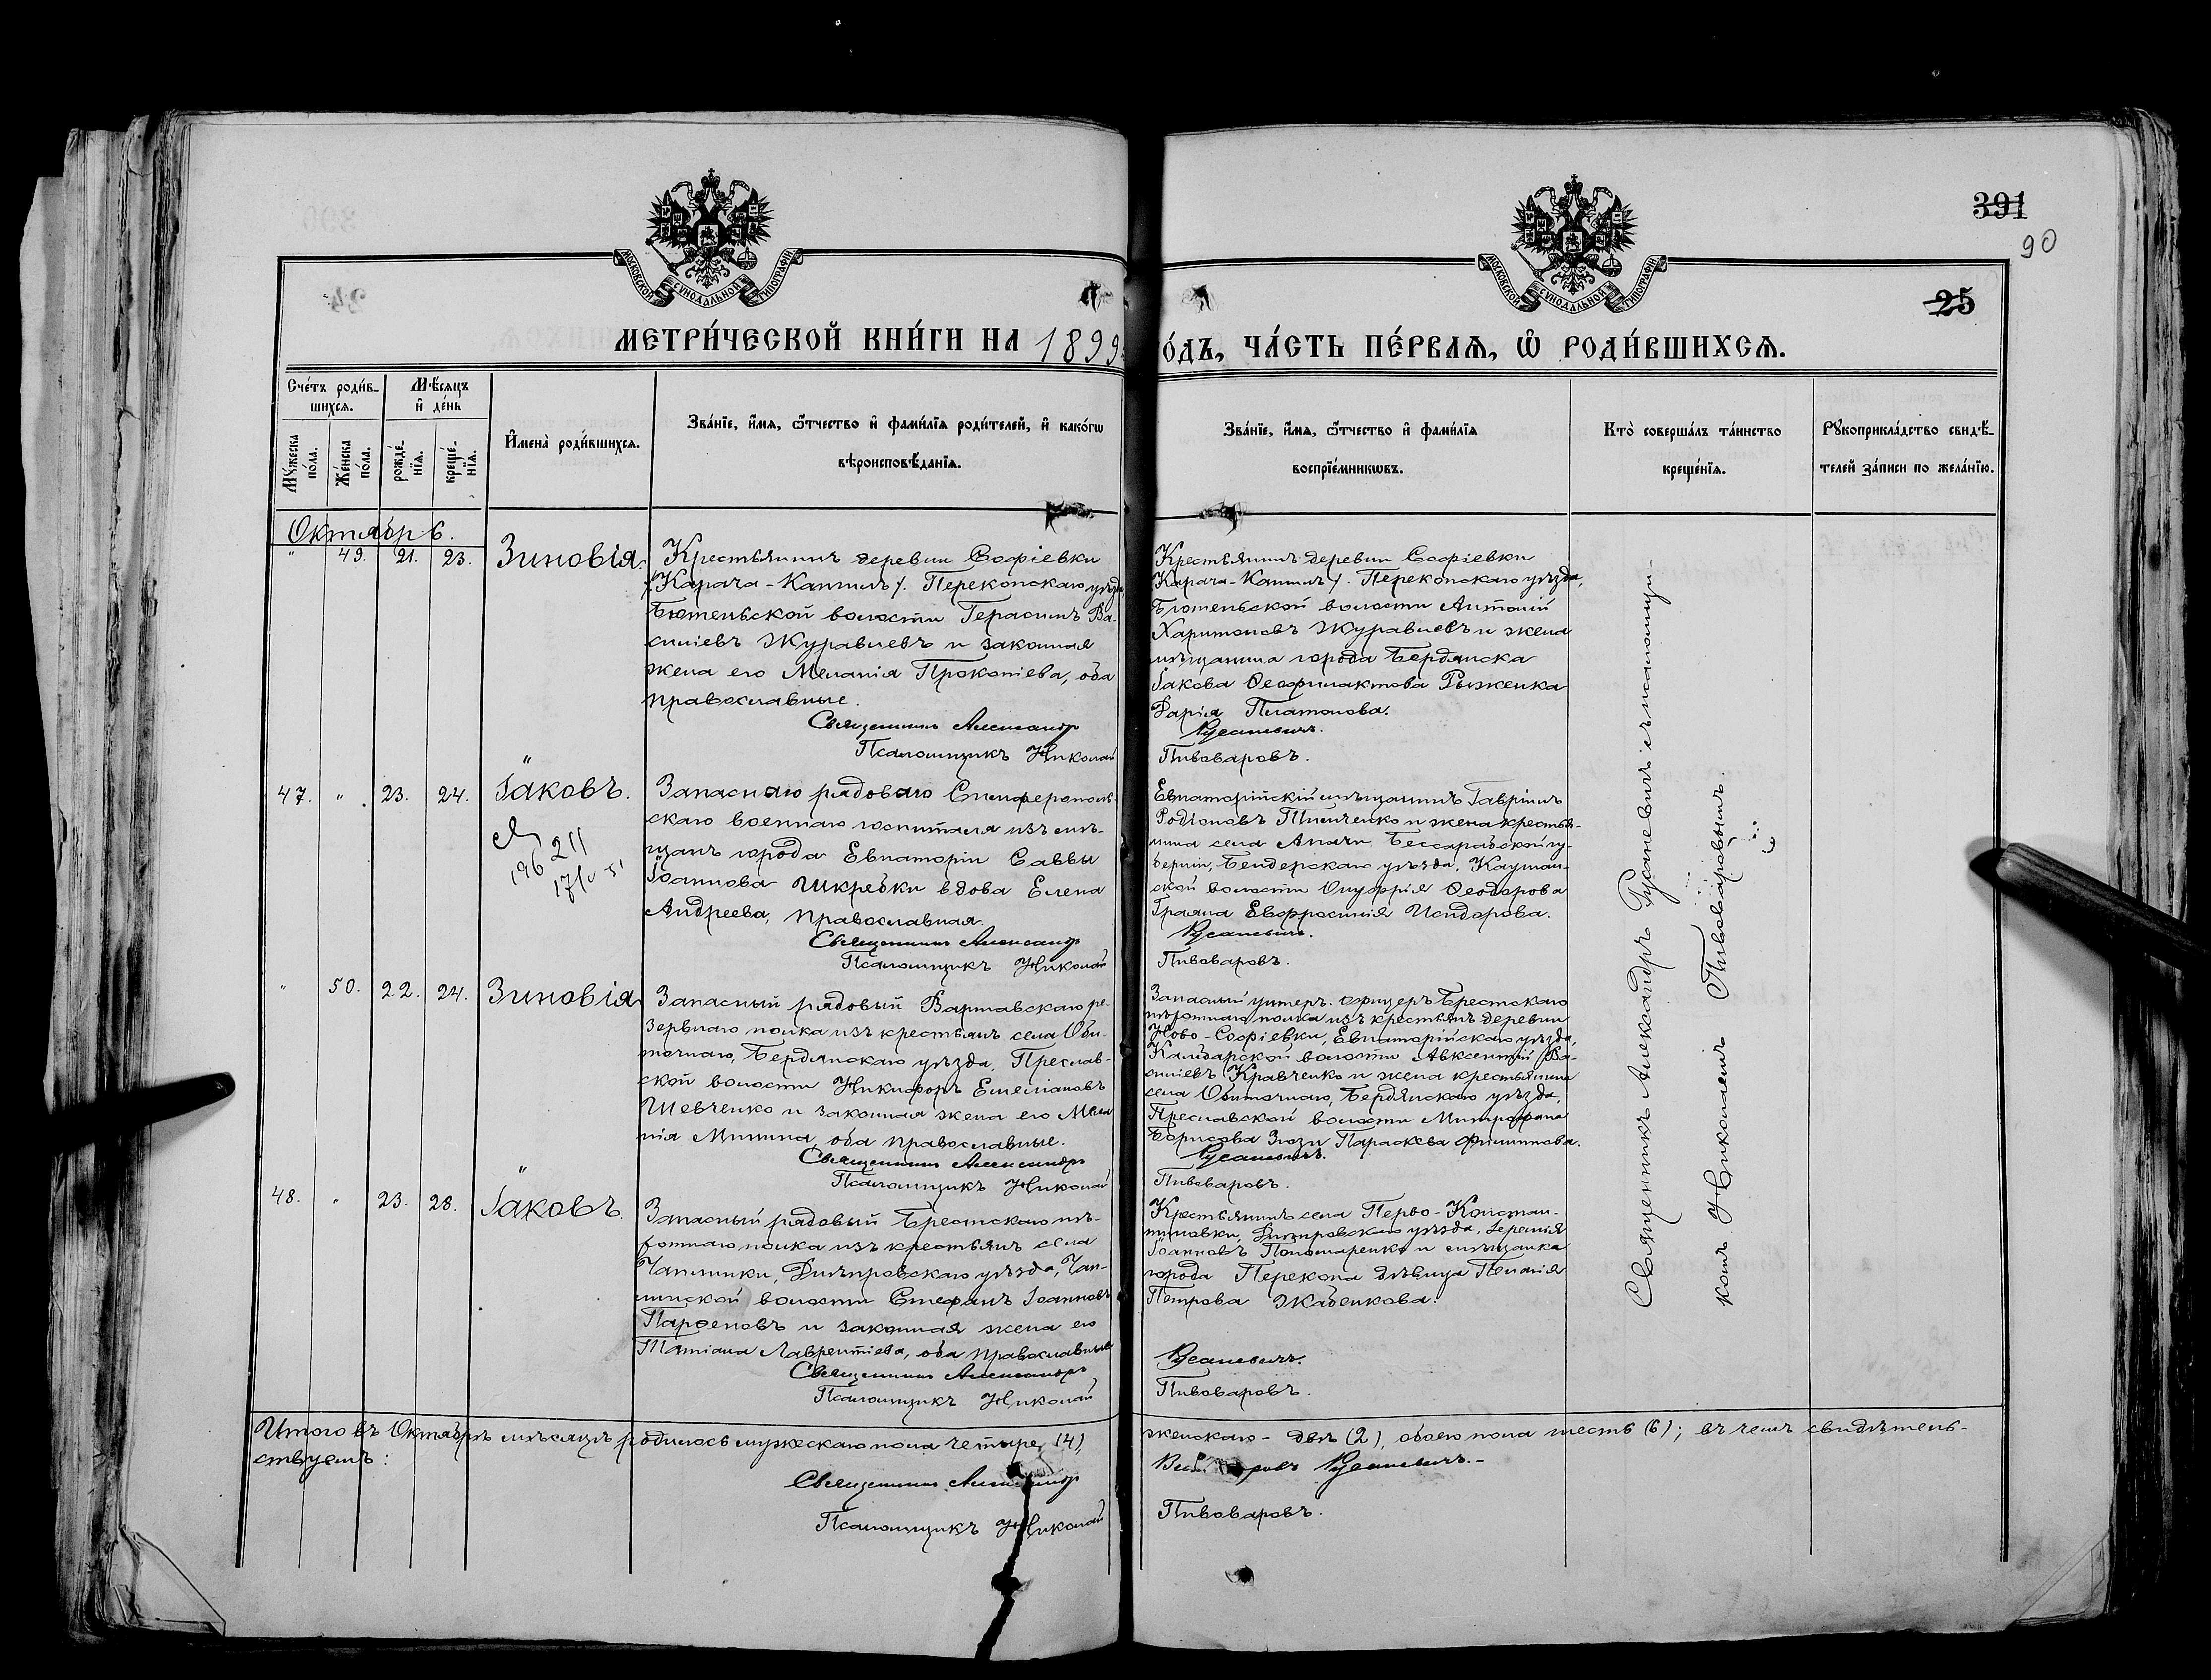 391
90
25
МОСКОВСКОЙ СУНОДАЛЬНОЙ ТИПОГРАФІИ
МОСКОВСКОЙ СУНОДАЛЬНОЙ ТИПОГРАФІИ
МЕТРИ́ЧЕСКОЙ КНИ́ГИ НА 1899
О́ДЪ, ЧА́СТЬ ПЕ́РВАѦ, Ѡ҆ РОДИ́ВШИХСѦ.
Сче́тъ роди́в-
шихсѧ.
Мѣ́сѧцъ
и҆ де́нь
Мꙋ́жеска
по́ла.
Же́нска
по́ла.
рожде́-
нїѧ.
креще́-
нїѧ.
И҆мена̀ роди́вшихсѧ.
Зва́нїе, и҆́мѧ, ѻ҆́тчество и҆ фами́лїѧ роди́телей, и҆ како́гѡ
вѣроисповѣ́данїѧ.
Зва́нїе, и҆́мѧ, ѻ҆́тчество и҆ фами́лїѧ
воспрїе́мникѡвъ.
Кто̀ соверша́лъ та́инство
креще́нїѧ.
Рꙋкоприкла́дство свидѣ́-
телей за́писи по жела́нїю.
Октябрь.
" 49. 21. 23. Зиновія.
Крестьянинъ деревни Софіевки
/Карача-Кангилъ/. Перекопскаго уѣзда,
Бютеньской волости Герасимъ Ва-
силіевъ Журавлевъ и законная
жена его Меланія Прокопіева, оба
православные.
Священникъ Александръ
Псаломщикъ Николай
Крестьянинъ деревни Софіевки
Карача-Кангилъ/. Перекопскаго уѣзда,
Бютеньской волости Антоній
Харитоновъ Журавлевъ и жена
мѣщанина города Бердянска
Іакова Ѳеофилактова Рыженка
Дарія Платонова.
Русаневичъ.
Пивоваровъ.
47. " 23. 24. Іаковъ.
211
196
Запаснаго рядоваго Симферополь-
скаго военнаго госпиталя изъ мѣ-
щанъ города Евпаторіи Саввы
Іоаннова Шкребки вдова Елена
Андреева, православная.
Священникъ Александръ
Псаломщикъ Николай
Евпаторійскій мѣщанинъ Гавріилъ
Родіоновъ Тимченко и жена крестья-
нина села Бессарабской гу-
берніи, Бендерскаго уѣзда, Каушан-
ской волости Онуфрія Ѳеодорова
Граяна Евфросинія Исидорова.
Русаневичъ.
Пивоваровъ.
" 50. 22. 24. Зиновія
Запасный рядовый Варшавскаго ре-
зервнаго полка изъ крестьянъ села Оби-
точнаго, Бердянскаго уѣзда, Преслав-
ской волости Никифоръ Емеліановъ
Шевченко и законная жена его Мела
нія Минина, оба православные.
Священникъ Александръ
Псаломщикъ Николай
Запасный унтеръ-офицеръ Брестскаго
пѣхотнаго полка изъ крестьянъ деревни
Ново-Софіевки, Евпаторійскаго уѣзда,
Камбарской волости Авксентій Ва-
силіевъ Кравченко и жена крестьянина
села Обиточнаго, Бердянскаго уѣзда,
Преславской волости Митрофана
Борисова Параскева Филиппова.
Русаневичъ.
Пивоваровъ.
48. " 23. 28. Іаковъ.
Запасный рядовый Брестскаго пѣ-
хотнаго полка изъ крестьянъ села
Чаплинки, Днѣпровскаго уѣзда, Чап-
линской волости Стефанъ Іоанновъ
Парѳеновъ и законная жена его
Татіана Лаврентіева, оба православные
Священникъ Александръ
Псаломщикъ Николай
Крестьянинъ села Перво-Констан-
тиновки, Днѣпровскаго уѣзда, Іеремія
Іоанновъ Пономаренко и мѣщанка
города Перекопа дѣвица Пелагія
Петрова Жабенкова.
Русаневичъ.
Пивоваровъ.
Священникъ Александръ Русаневичъ съ псаломщи-
комъ Николаемъ Пивоваровымъ.
Итого въ Октябрѣ мѣсяцѣ родилось мужескаго пола четыре (4),
женскаго - двѣ (2), обоего пола шесть (6); въ чемъ свидѣтель-
ствуемъ:
Священникъ Александръ
Русаневичъ.-
Псаломщикъ Николай
Пивоваровъ.